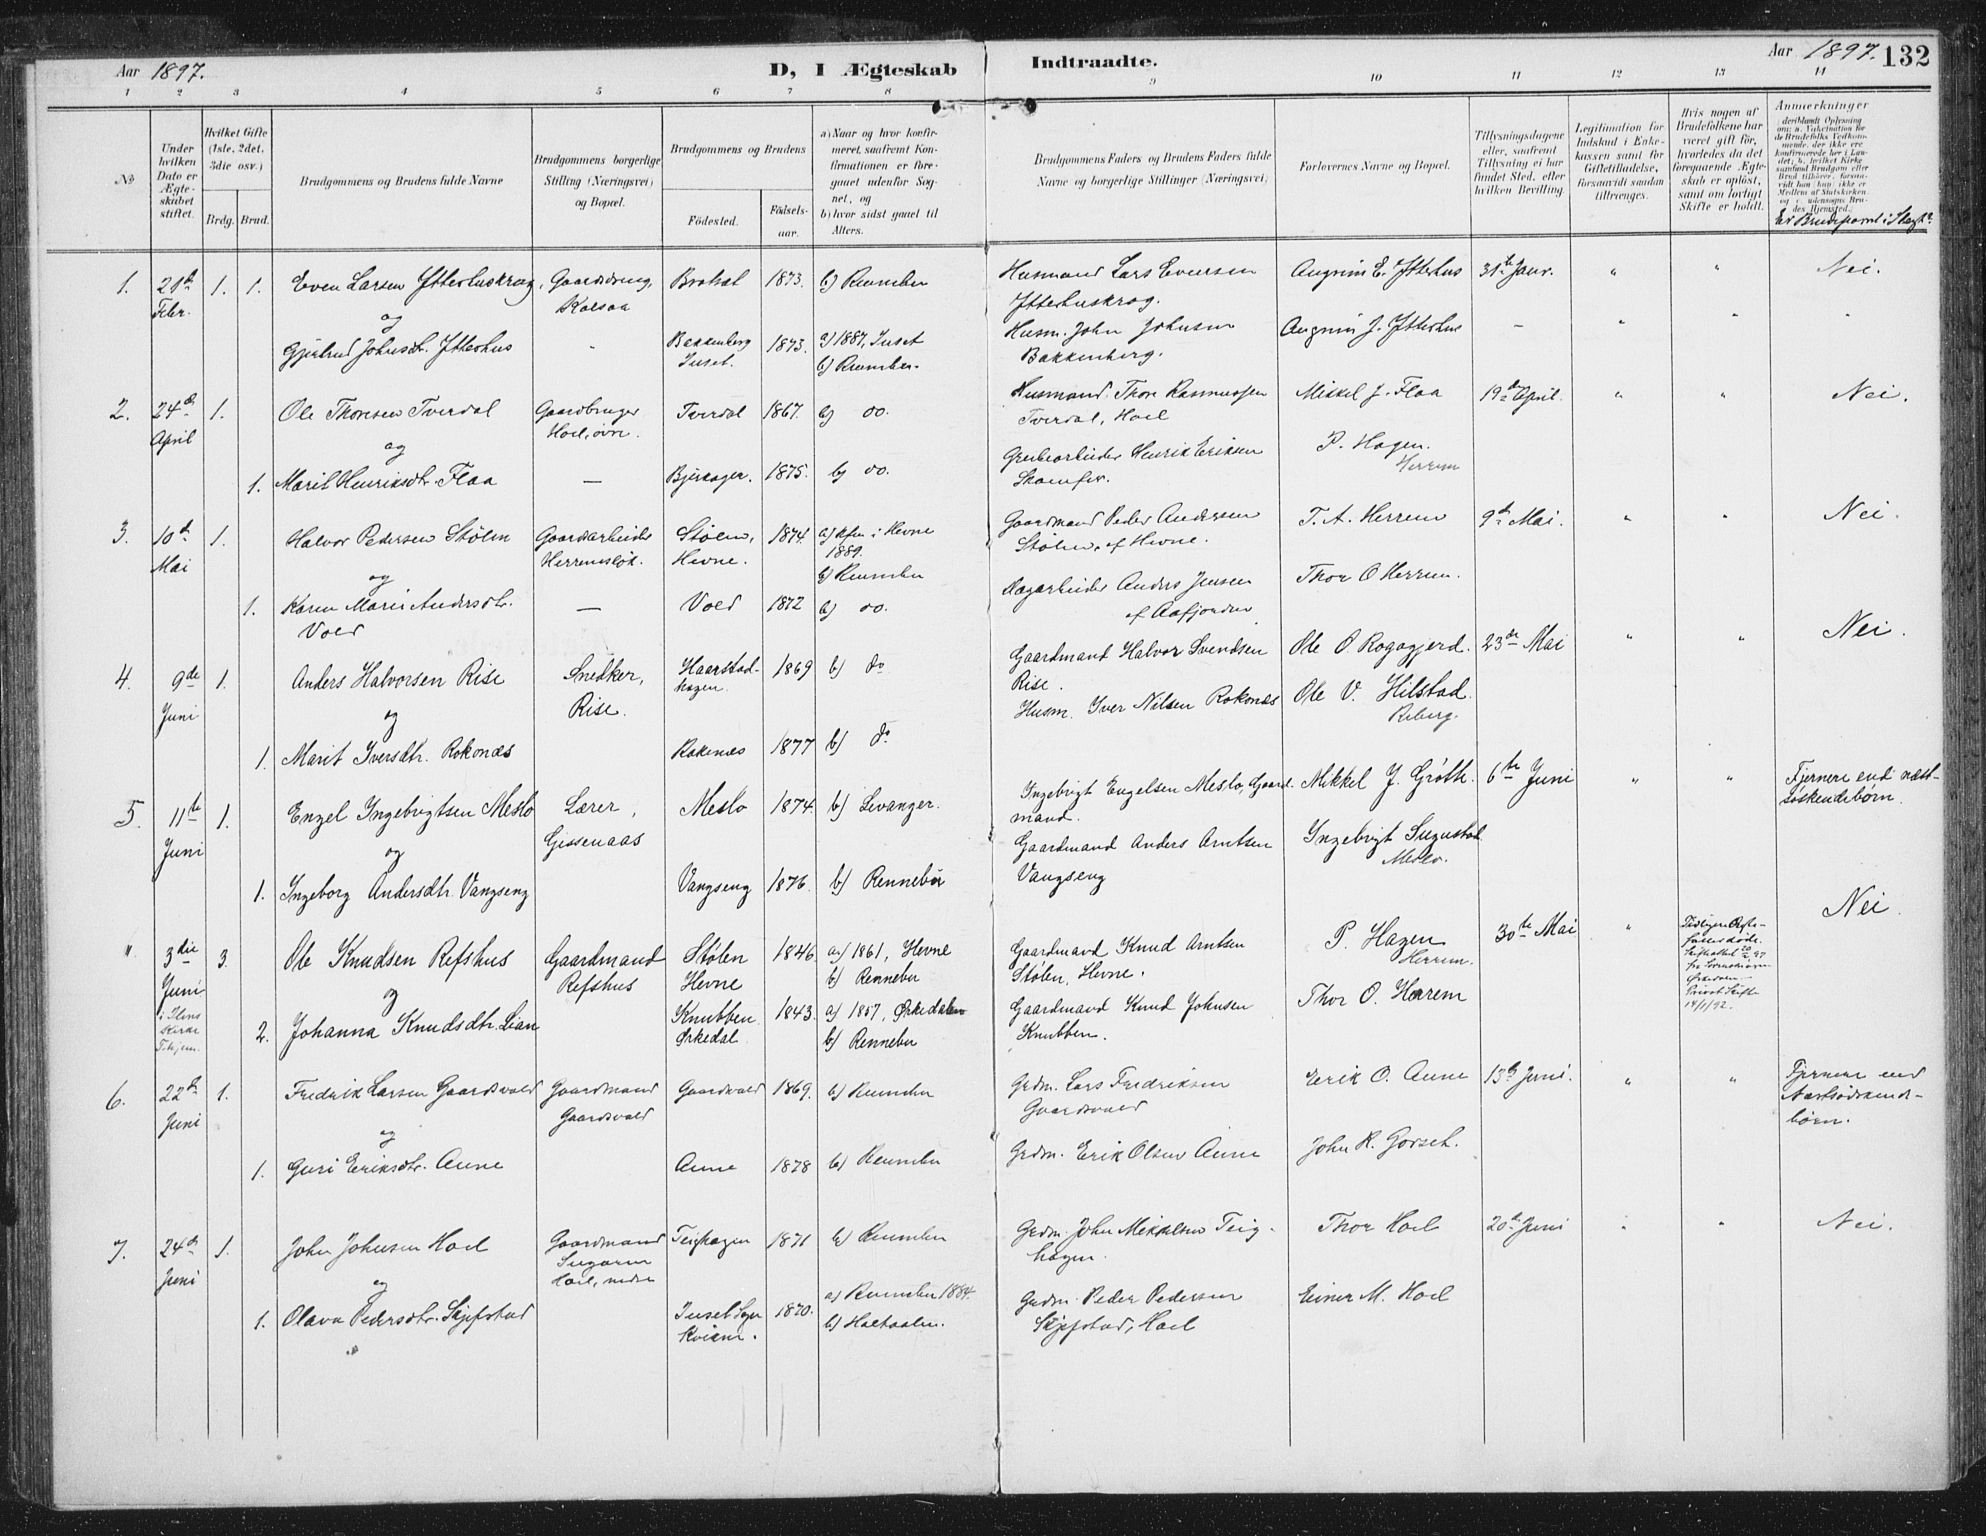 Aar 1897. D, I Ægteskab Indtraadte. Aar 1897. 132
1 2 3 4 5 6 7 8 9 10 11 12 13 14
№
Under hvilken Dato er Ægteskabet stiftet.
Hvilket Gifte (1ste, 2det, 3die osv.)
Brdg. Brud.
Brudgommens og Brudens fulde Navne
Brudgommens borgerlige Stilling (Næringsvei) og Bopæl.
Brudgommens og Brudens
Fødested. Fødselsaar.
a) Naar og hvor konfirmeret, saafremt Konfirmationen er foregaaet udenfor Sognet, og
b) hvor sidst gaaet til Alters.
Brudgommens Faders og Brudens Faders fulde Navne og borgerlige Stillinger (Næringsvei)
Forlovernes Navne og Bopæl.
Tillysningsdagene eller, saafremt Tillysning ei har fundet Sted, efter hvilken Bevilling.
Legitimation for Indskud i Enkekassen samt for Giftetilladelse, forsaavidt saadan tiltrænges.
Hvis nogen af Brudefolkene har været gift før, hvorledes da det foregaaende Ægteskab er opløst, samt om lovligt Skifte er holdt.
Anmerkninger
Er Brudeparret i Slegt?
1. 21de Febr. 1. 1. Even Larsen Ytterhuskrog, Gaarddreng, Kolsaa 1873. b) Rennebu
Husmand Lars Evensen Ytterhuskrog. Augrim E. Ytterhus 31te Janr. " " Nei.
og
Gjertrud Johnsdtr. Ytterhus " Bakkenberg Inset. 1873. a) 1887, Inset b) Rennebu.
Husm. John Johnsen Bakkenberg. Augrim J. Ytterhus – " " "
2. 24de April 1. Ole Thoresen Tverdal Gaardbruger Hoel, øvre. Tverdal 1867. b) do.
Husmand Thore Rasmussen Tverdal, Hoel Mikkel J. Flaa 19de April. " " Nei.
og
1. Marit Henriksdtr. Flaa — Bjerkager. 1875. b) do.
Grubearbeider Henrik Eriksen P. Hagen. Herrem
3. 10de Mai 1. Halvor Pedersen Stølen Gaardarbeider Stølen, Hevne. 1874. a) Kfm. i Hevne 1889. b) Rennebu
Gaardmand Peder Andersen Stølen, af Hevne. T. A. Herrem 9de Mai. " " Nei.
og
1. Karen Marie Andersdtr. Vold — Vold 1872 b) do.
Dagarbeider Anders Jensen af Aafjorden Thor O Herrem.
4. 9de Juni 1. Anders Halvorsen Rise Snedker, Rise. Haarstadhagen. 1869 b) do
Gaardmand Halvor Svendsen Rise. Ole O. Rogogjerd. 23de Mai " " Nei.
og
1. Marit Iversdtr. Rokonæs Rokenæs 1877 b) do
Husm. Iver Nilsen Rokonæs Ole V. Hilstad. Reberg.
5. 11te Juni 1. Engel Ingebrigtsen Meslo Lærer, Gissenaas Meslo 1874. b) Levanger.
Ingebrigt Engelsen Meslo, Gaardmand. Mikkel J. Grøtte. 6te Juni " " Fjernere end næstsøskendebørn.
og
1. Ingeborg Andersdtr. Vangseng Vangseng 1876. b) Rennebu
Gaardmand Anders Arntsen Vangseng Ingebrigt Sugustad Meslo.
" 3die Juni 3. Ole Knudsen Refshus Gaardmand Refshus Stølen Hevne 1846. a) 1861, Hevne b) Rennebu
Gaardmand Knud Arntsen Stølen, Hevne. P. Hagen Herrem. 30te Mai " Nei.
og
2. Johanna Knudsdtr. Lian Knubben Ørkedal 1843. a) 1857, Ørkedalen b) Rennebu
Gaardmand Knud Johnsen Knubben. Thor O. Herrem
6. 22de Juni 1. Fredrik Larsen Gaardsvold Gaardmand Gaardsvold Gaardsvold 1869. b) Rennebu
Grdm. Lars Fredriksen Gaardsvold Erik O. Aune 13de Juni. " " Fjernere end Næstsødskendebørn.
og
1. Guri Eriksdtr. Aune Aune 1878 b) Rennebu
Grdm. Erik Olsen Aune John R. Gorset.
7. 24de Juni 1. John Johnsen Hoel Gaardmand Hoel, nedre Teighagen 1871 b) Rennebu
Grdm. John Mikkelsen Teighagen. Thor Hoel 20de Juni " " Nei.
og
1. Olava Pedersdtr. Skjefstad Inset Sogn Kvikne. 1870. a) Rennebu 1884. b) Holtaalen.
Grdm. Peder Pedersen Skjefstad, Hoel Einer M. Hoel